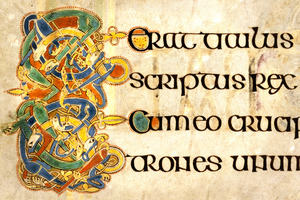 Erat titulus
scriptus rex
Et cum eo crucif
trones unum